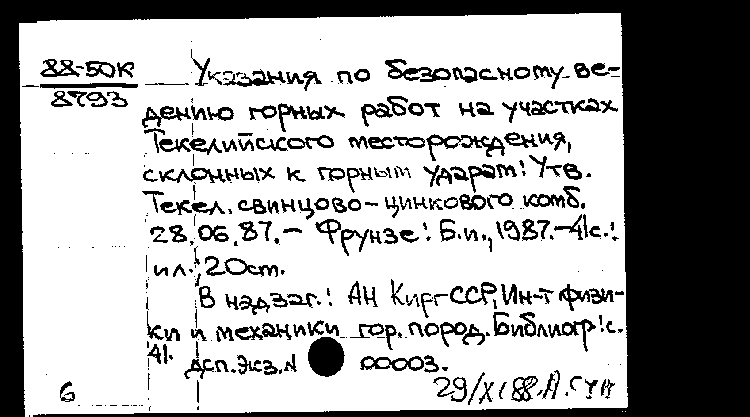 88-50К
8793
Указания по безопасному ве-
дению горных работ на участках
Текелийского месторождения,
склонных к горным ударам: Утв.
Текел. свинцово-цинкового комб.
28.06.87. - Фрунзе: Б.и., 1987. - 41с.:
ил.; 20см.
В надзаг.: АН КиргССР, Ин-т физи-
ки и механики гор. пород. Библиогр: с.
41.
ДСП. Экз. N 00003.
6 29/XI 88.